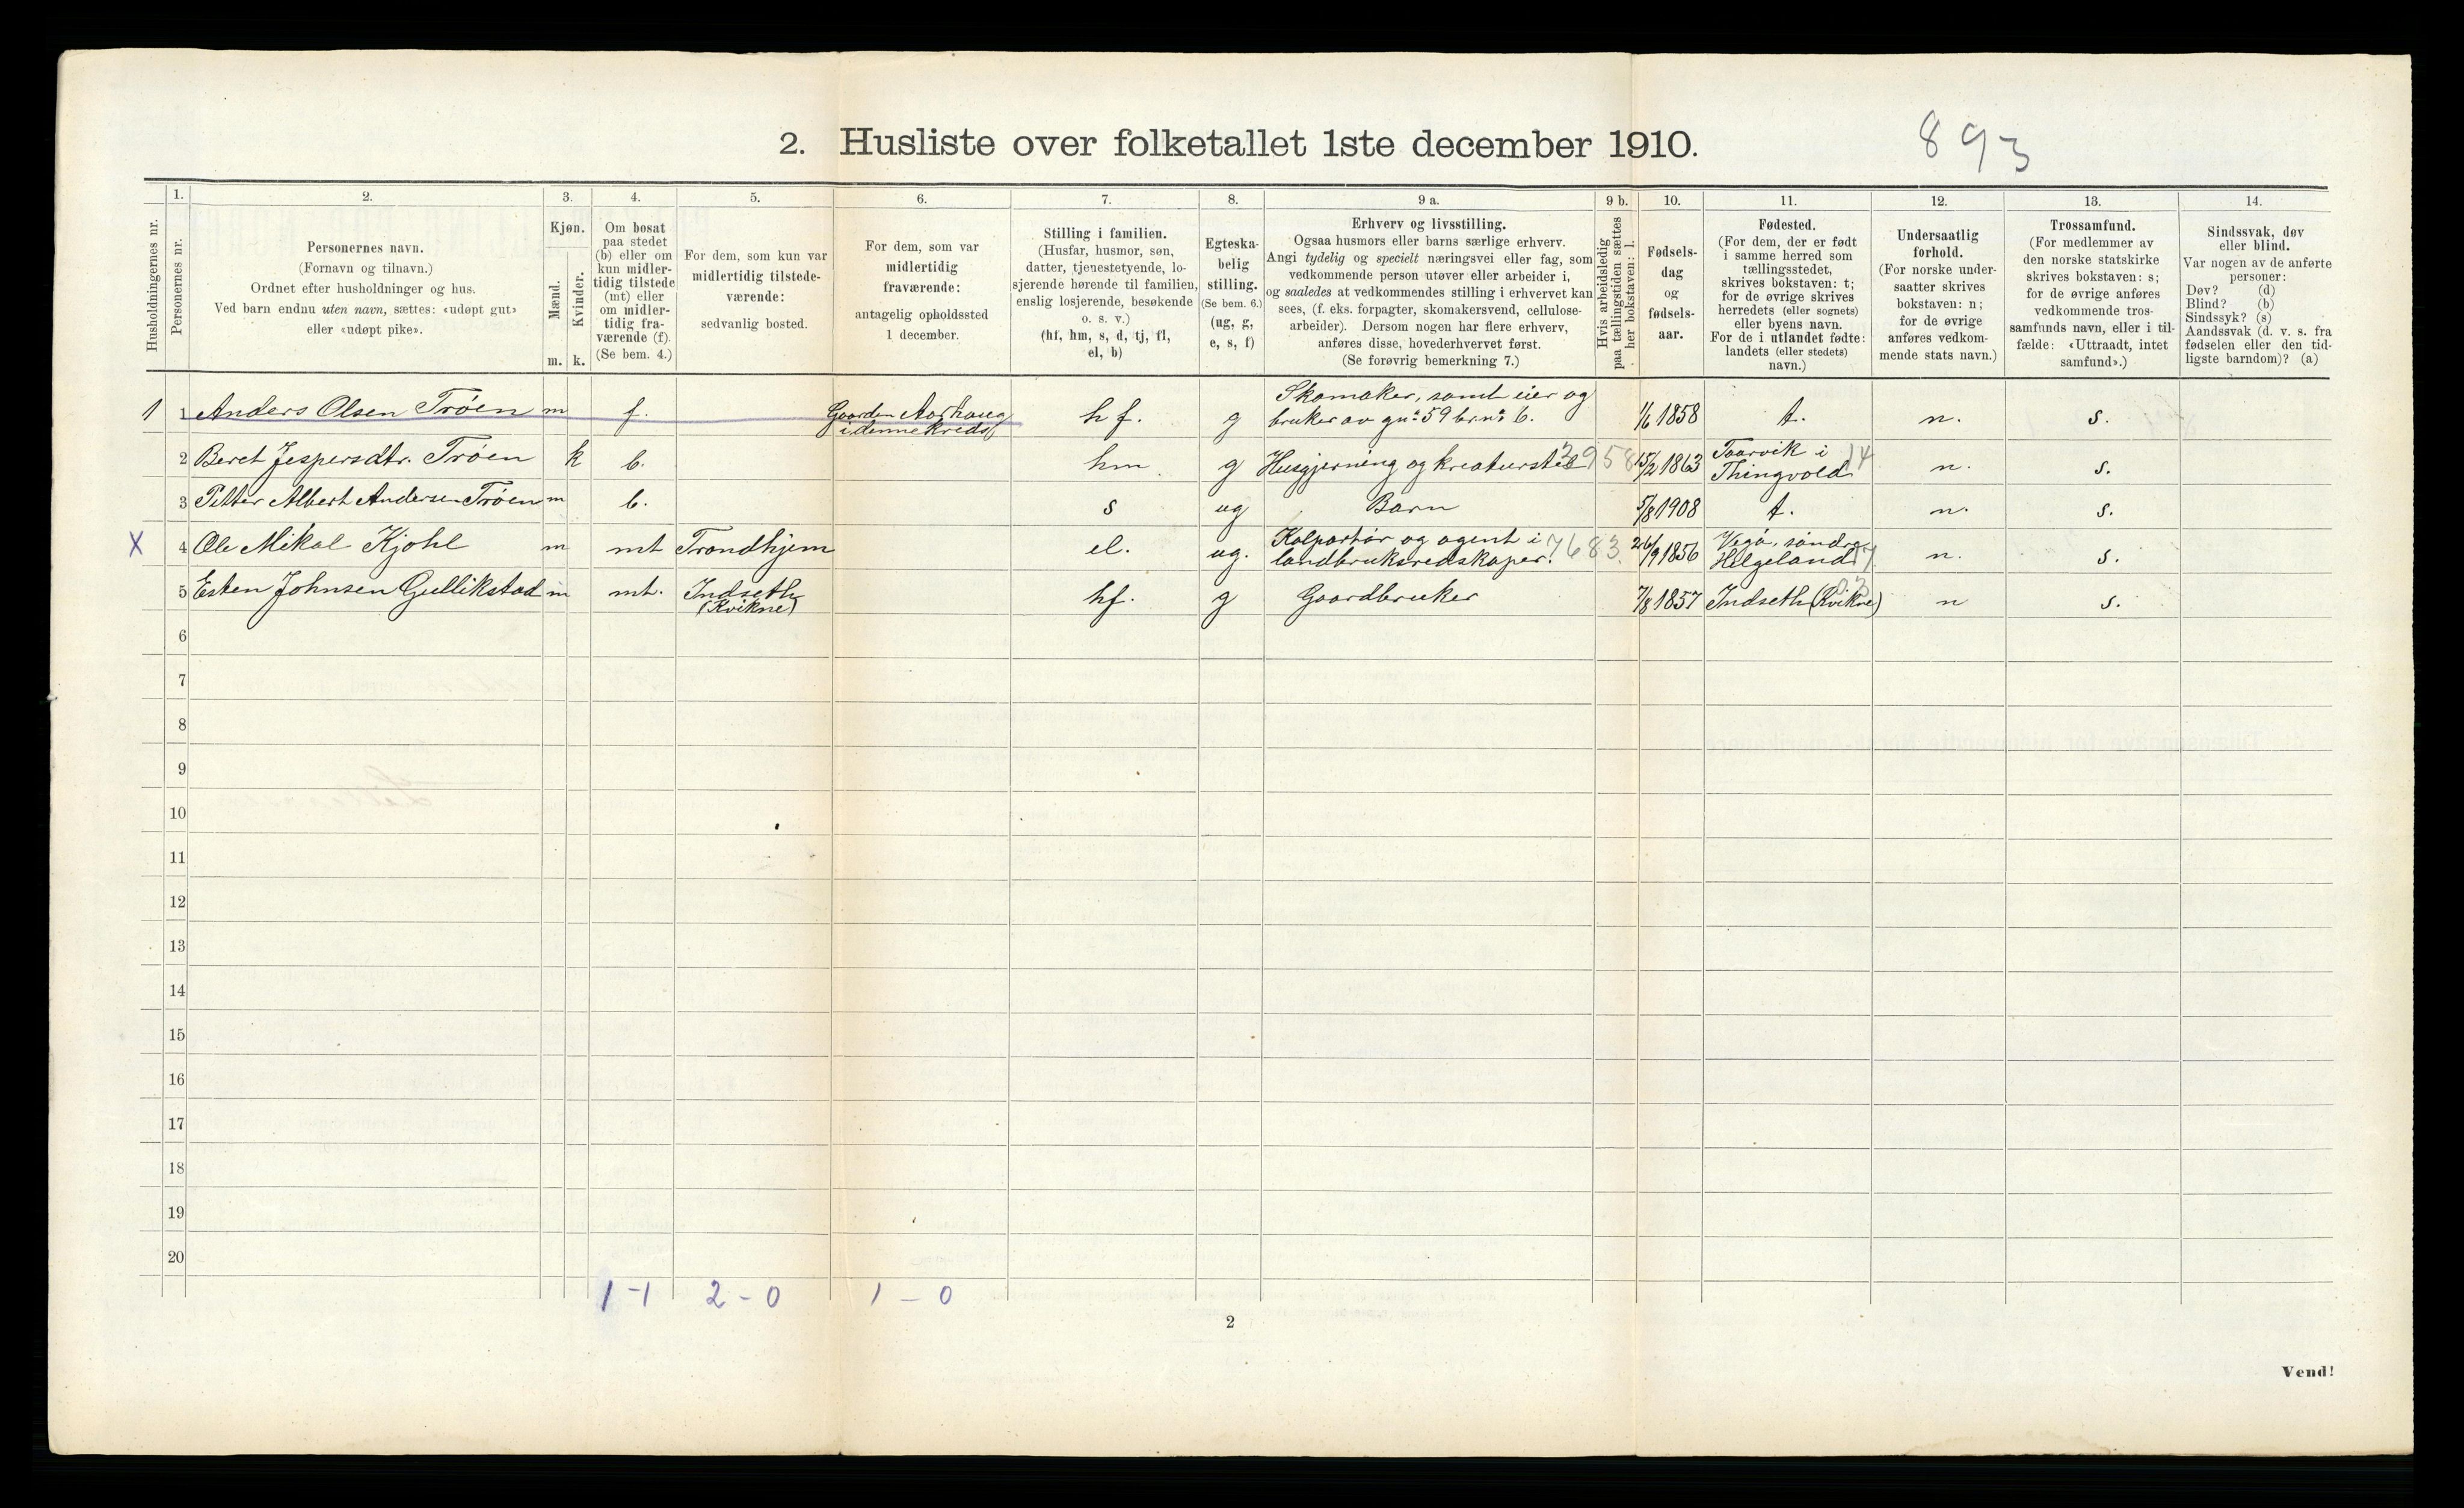 2. Husliste over folketallet 1ste december 1910.
893
Husholdningernes nr.
1.
Personernes nr.
2.
Personernes navn.
(Fornavn og tilnavn.)
Ordnet efter husholdninger og hus.
Ved barn endnu uten navn, sættes: «udøpt gut»
eller «udøpt pike».
3.
Kjøn.
Mænd.
Kvinder.
m. k.
4.
Om bosat
paa stedet
(b) eller om
kun midler-
tidig tilstede
(mt) eller
om midler-
tidig fra-
værende (f).
(Se bem. 4.)
5.
For dem, som kun var
midlertidig tilstede-
værende:
sedvanlig bosted.
6.
For dem, som var
midlertidig
fraværende:
antagelig opholdssted
1 december.
7.
Stilling i familien.
(Husfar, husmor, søn,
datter, tjenestetyende, lo-
sjerende hørende til familien,
enslig losjerende, besøkende
o. s. v.)
(hf, hm, s, d, tj, fl,
el, b)
8.
Egteska-
belig
stilling.
(Se bem. 6.)
(ug, g,
e, s, f)
9 a.
Erhverv og livsstilling.
Ogsaa husmors eller barns særlige erhverv.
Angi tydelig og specielt næringsvei eller fag, som
vedkommende person utøver eller arbeider i,
og saaledes at vedkommendes stilling i erhvervet kan
sees, (f. eks. forpagter, skomakersvend, cellulose-
arbeider). Dersom nogen har flere erhverv,
anføres disse, hovederhvervet først.
(Se forøvrig bemerkning 7.)
9 b.
Hvis arbeidsledig
paa tællingstiden sættes
her bokstaven: l.
10.
Fødsels-
dag
og
fødsels-
aar.
11.
Fødested.
(For dem, der er født
i samme herred som
tællingsstedet,
skrives bokstaven: t;
for de øvrige skrives
herredets (eller sognets)
eller byens navn.
For de i utlandet fødte:
landets (eller stedets)
navn.)
12.
Undersaatlig
forhold.
(For norske under-
saatter skrives
bokstaven: n;
for de øvrige
anføres vedkom-
mende stats navn.)
13.
Trossamfund.
(For medlemmer av
den norske statskirke
skrives bokstaven: s;
for de øvrige anføres
vedkommende tros-
samfunds navn, eller i til-
fælde: «Uttraadt, intet
samfund».)
14.
Sindssvak, døv
eller blind.
Var nogen av de anførte
personer:
Døv? (d)
Blind? (b)
Sindssyk? (s)
Aandssvak (d. v. s. fra
fødselen eller den tid-
ligste barndom)? (a)
1 1 Anders Olsen Trøen m f. Gaarden Aarhaug i denne kreds hf. g Skomaker, samt eier og bruker av gn: 59 br.n: 6. 1/6 1858 t. n. s.
2 Beret Jespersdtr. Trøen k b. hm g Husgjerning og kreaturstel 2958 15/2 1863 Taarvik i Thingvold 14 n. s.
3 Petter Albert Andersen Trøen m b. s ug Barn 5/8 1908 t. n. s.
X 4 Ole Mikal Kjohl m mt Trondhjem el. ug. Kolportør og agent i landbruksredskaper. 7683 26/9 1856 Vegø, søndre Helgeland 17 n. s.
5 Esten Johnsen Gullikstad m mt. Indseth (Kvikne) hf. g Gaardbruker 7/8 1857 Indseth (Kvikne) n s.
6
7
8
9
10
11
12
13
14
15
16
17
18
19
20
1-1 2-0 1-0
2
Vend!